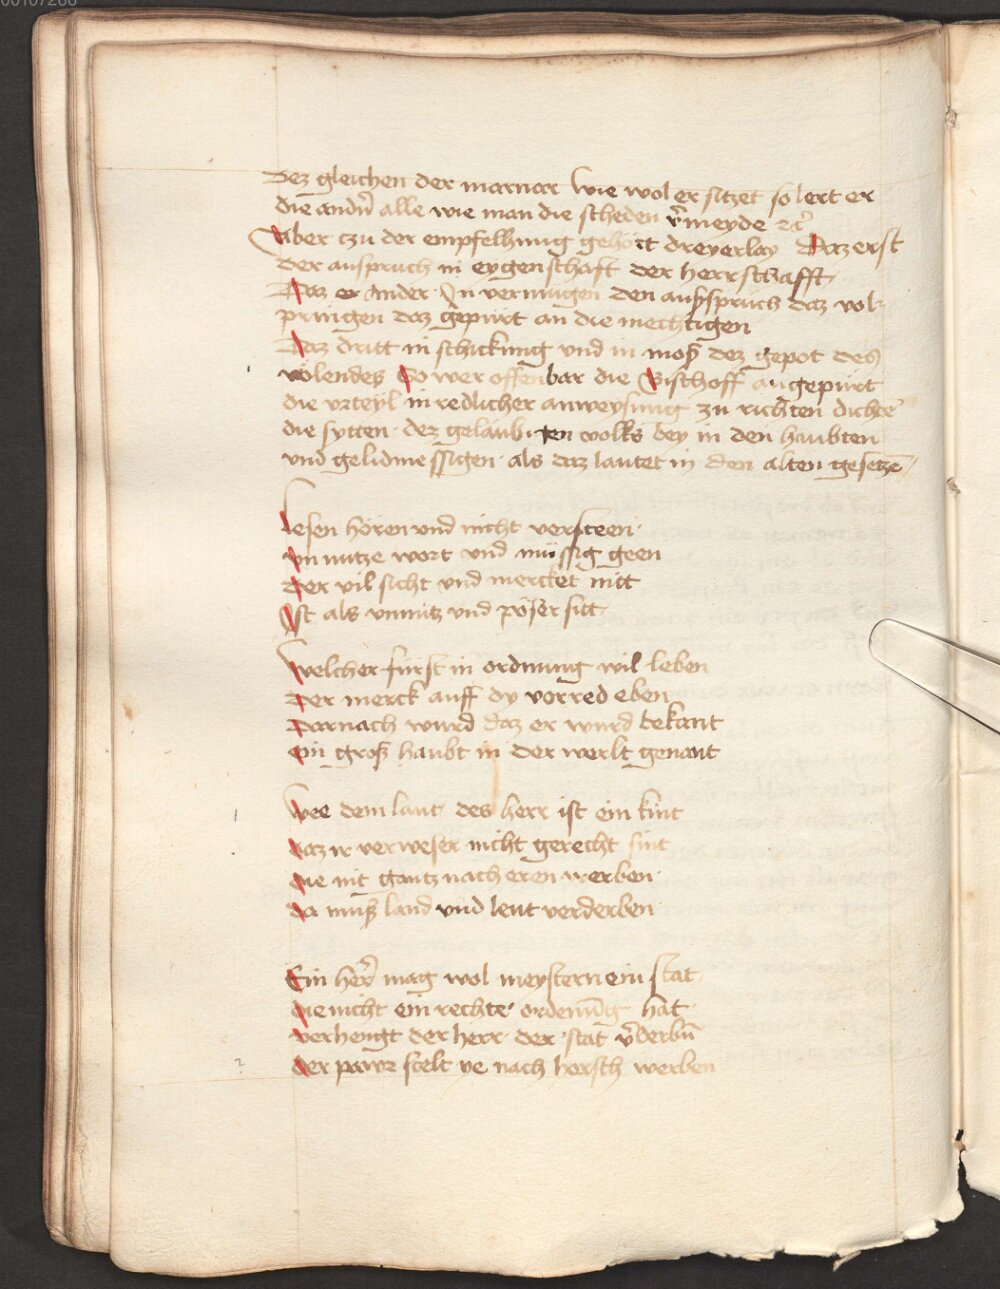 00107268
Dez gleichen der marnar wie wol er sitzet so lert er
die andñ alle wie man die scheden v̄meyde ꝛc̄
Aber czu der empfelhnug gehört dreyerlay Daz erst
der anspruch in eygenschafft der herrschafft
Daz er Ander In vermugen den außspruch daz vol
pringen daz gepurt an die mechtigen
Daz dritt in schickung vnd in moß dez gepot des
volendes So wer offenbar die Bischoff angepürt
die vrteyl in redlicher anweysung zu richten dichte
die sytten dez gelaubigen volks bey in den haubten
vnd gelidmessigen als daz lautet in den alten gesetzē
Lesen hören vnd nicht versteen
vn nutze wort vnd müssig geen
Der vil sicht vnd mercket nitt
Ist als vnnütz vnd pöser sitt
Welcher fürst in ordnung wil leben
Der merck auff dy vorred eben
Darnach wurd daz er wurd bekant
ein groß haubt in der werlt genant
Wee dem lant des herr ist ein kint
daz ir verweser nicht gerecht sint
die nit gantz nach eren werben
da muß land vnd leut verderben
Ein herr̄ mag wol meystern ein stat
die nicht ein rechte ordenūg hat
verhengt der herr der stat v̄derbñ
der pawr stelt ye nach hersch werben